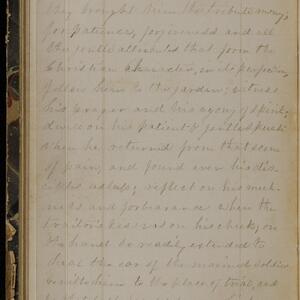 they brought him the tribute money,
for patience, forgiveness and all
the gentle attributes that form the
Christian character, in its perfection,
follow him to the garden; witness
his prayer and his agony of spirit;
dwell on his patient & gentle speech
when he returned from that scene
of pain, and found even his dis-
ciples asleep; reflect on his meek-
ness and forbearance when the
traitor's kiss was on his cheek, on
the hand so readily extended to
heal the ear of the maimed soldier
him to the place of trial, and